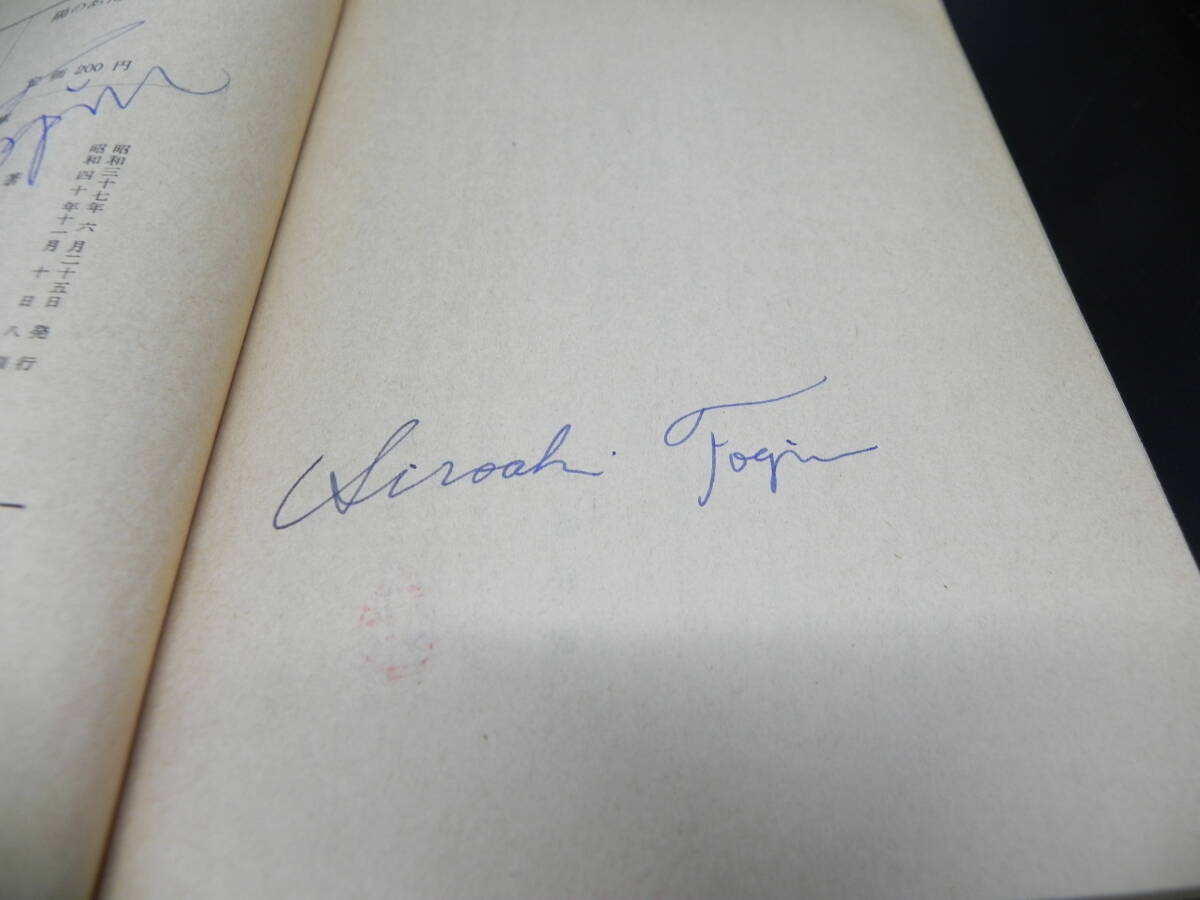 価 200 円
昭和三十七年六月二十五日発行
昭和四十年十一月十日八
Hiroaki Togi